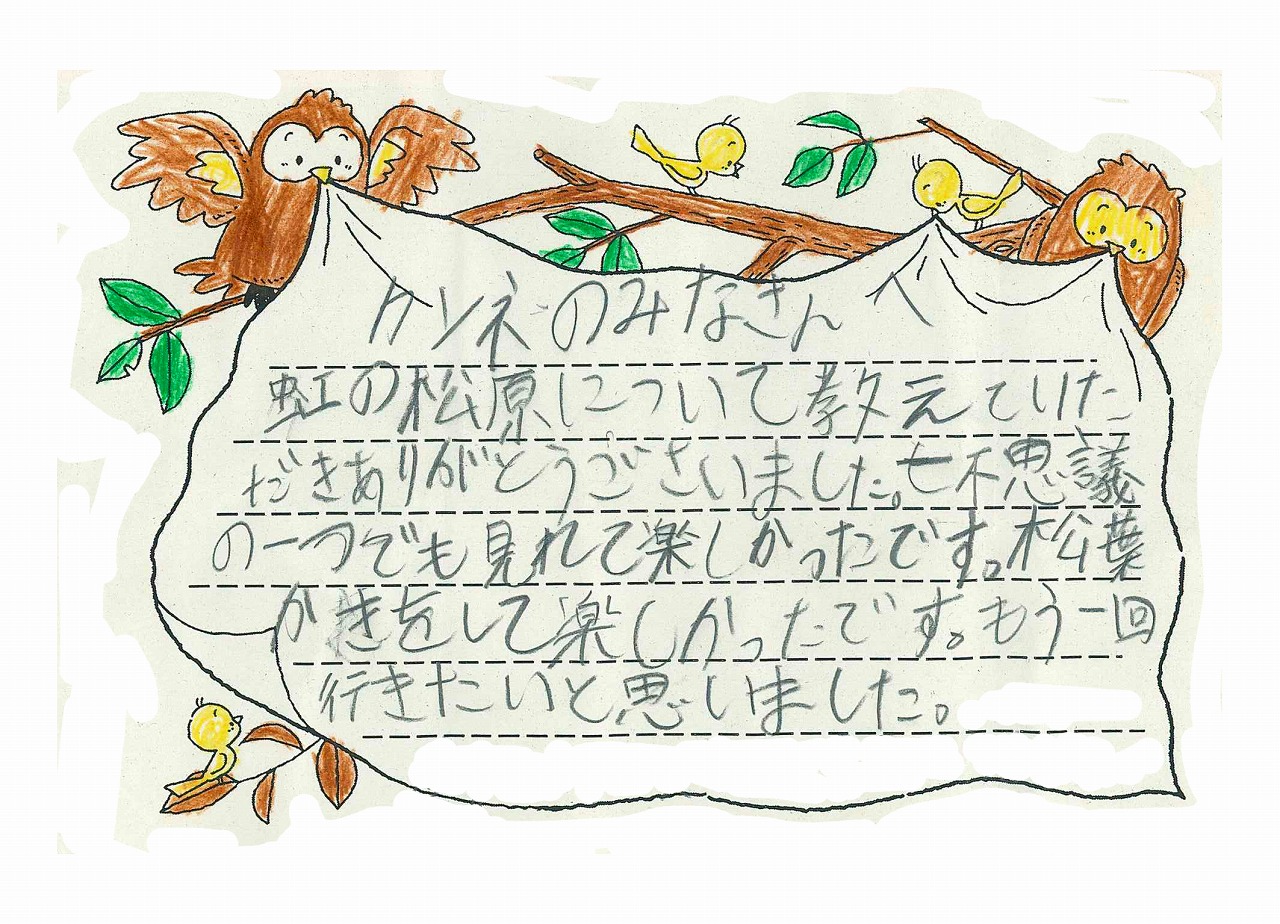 カンネのみなさんへ
虹の松原について教えていた
だきありがとうございました。七不思議
の一つでも見れて楽しかったです。松葉
かきをして楽しかったです。もう一回
行きたいと思いました。